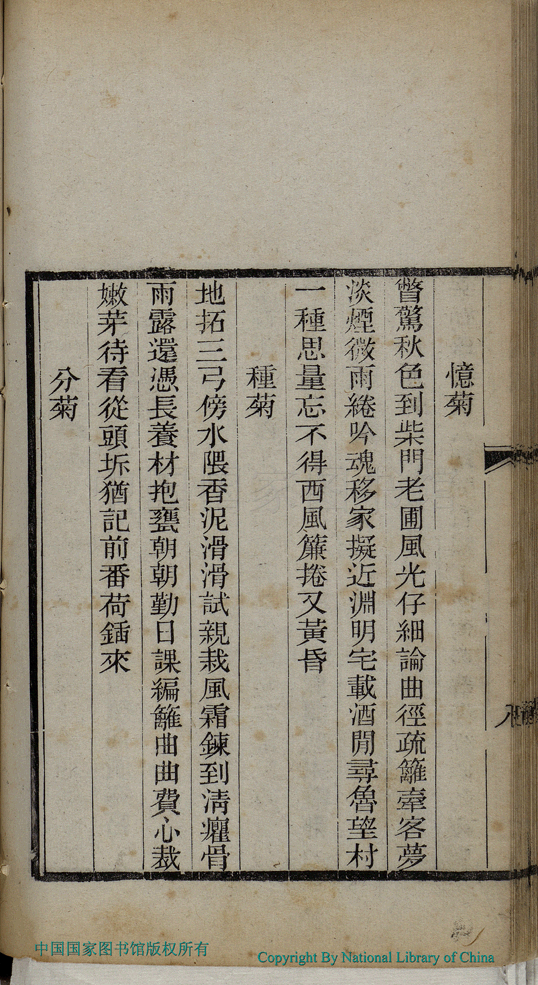 憶菊
瞥驚秋色到柴門老圃風光仔細論曲徑疏籬牽客夢
淡煙微雨綣吟魂移家擬近淵明宅載酒閒尋魯望村
一種思量忘不得西風簾捲又黃昏
種菊
地拓三弓傍水隈香泥滑滑試親栽風霜鍊到淸癯骨
雨露還憑長養材抱甕朝朝勤日課編籬曲曲費心裁
嫩芽待看從頭坼猶記前番荷鍤來
分菊
中国国家图书馆版权所有
Copyright By National Library of China